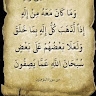 وَمَا كَانَ مَعَهُ مِنْ إِلَٰهٍ
إِذًا لَّذَهَبَ كُلُّ إِلَٰهٍ بِمَا خَلَقَ
وَلَعَلَا بَعْضُهُمْ عَلَىٰ بَعْضٍ
سُبْحَانَ اللَّهِ عَمَّا يَصِفُونَ